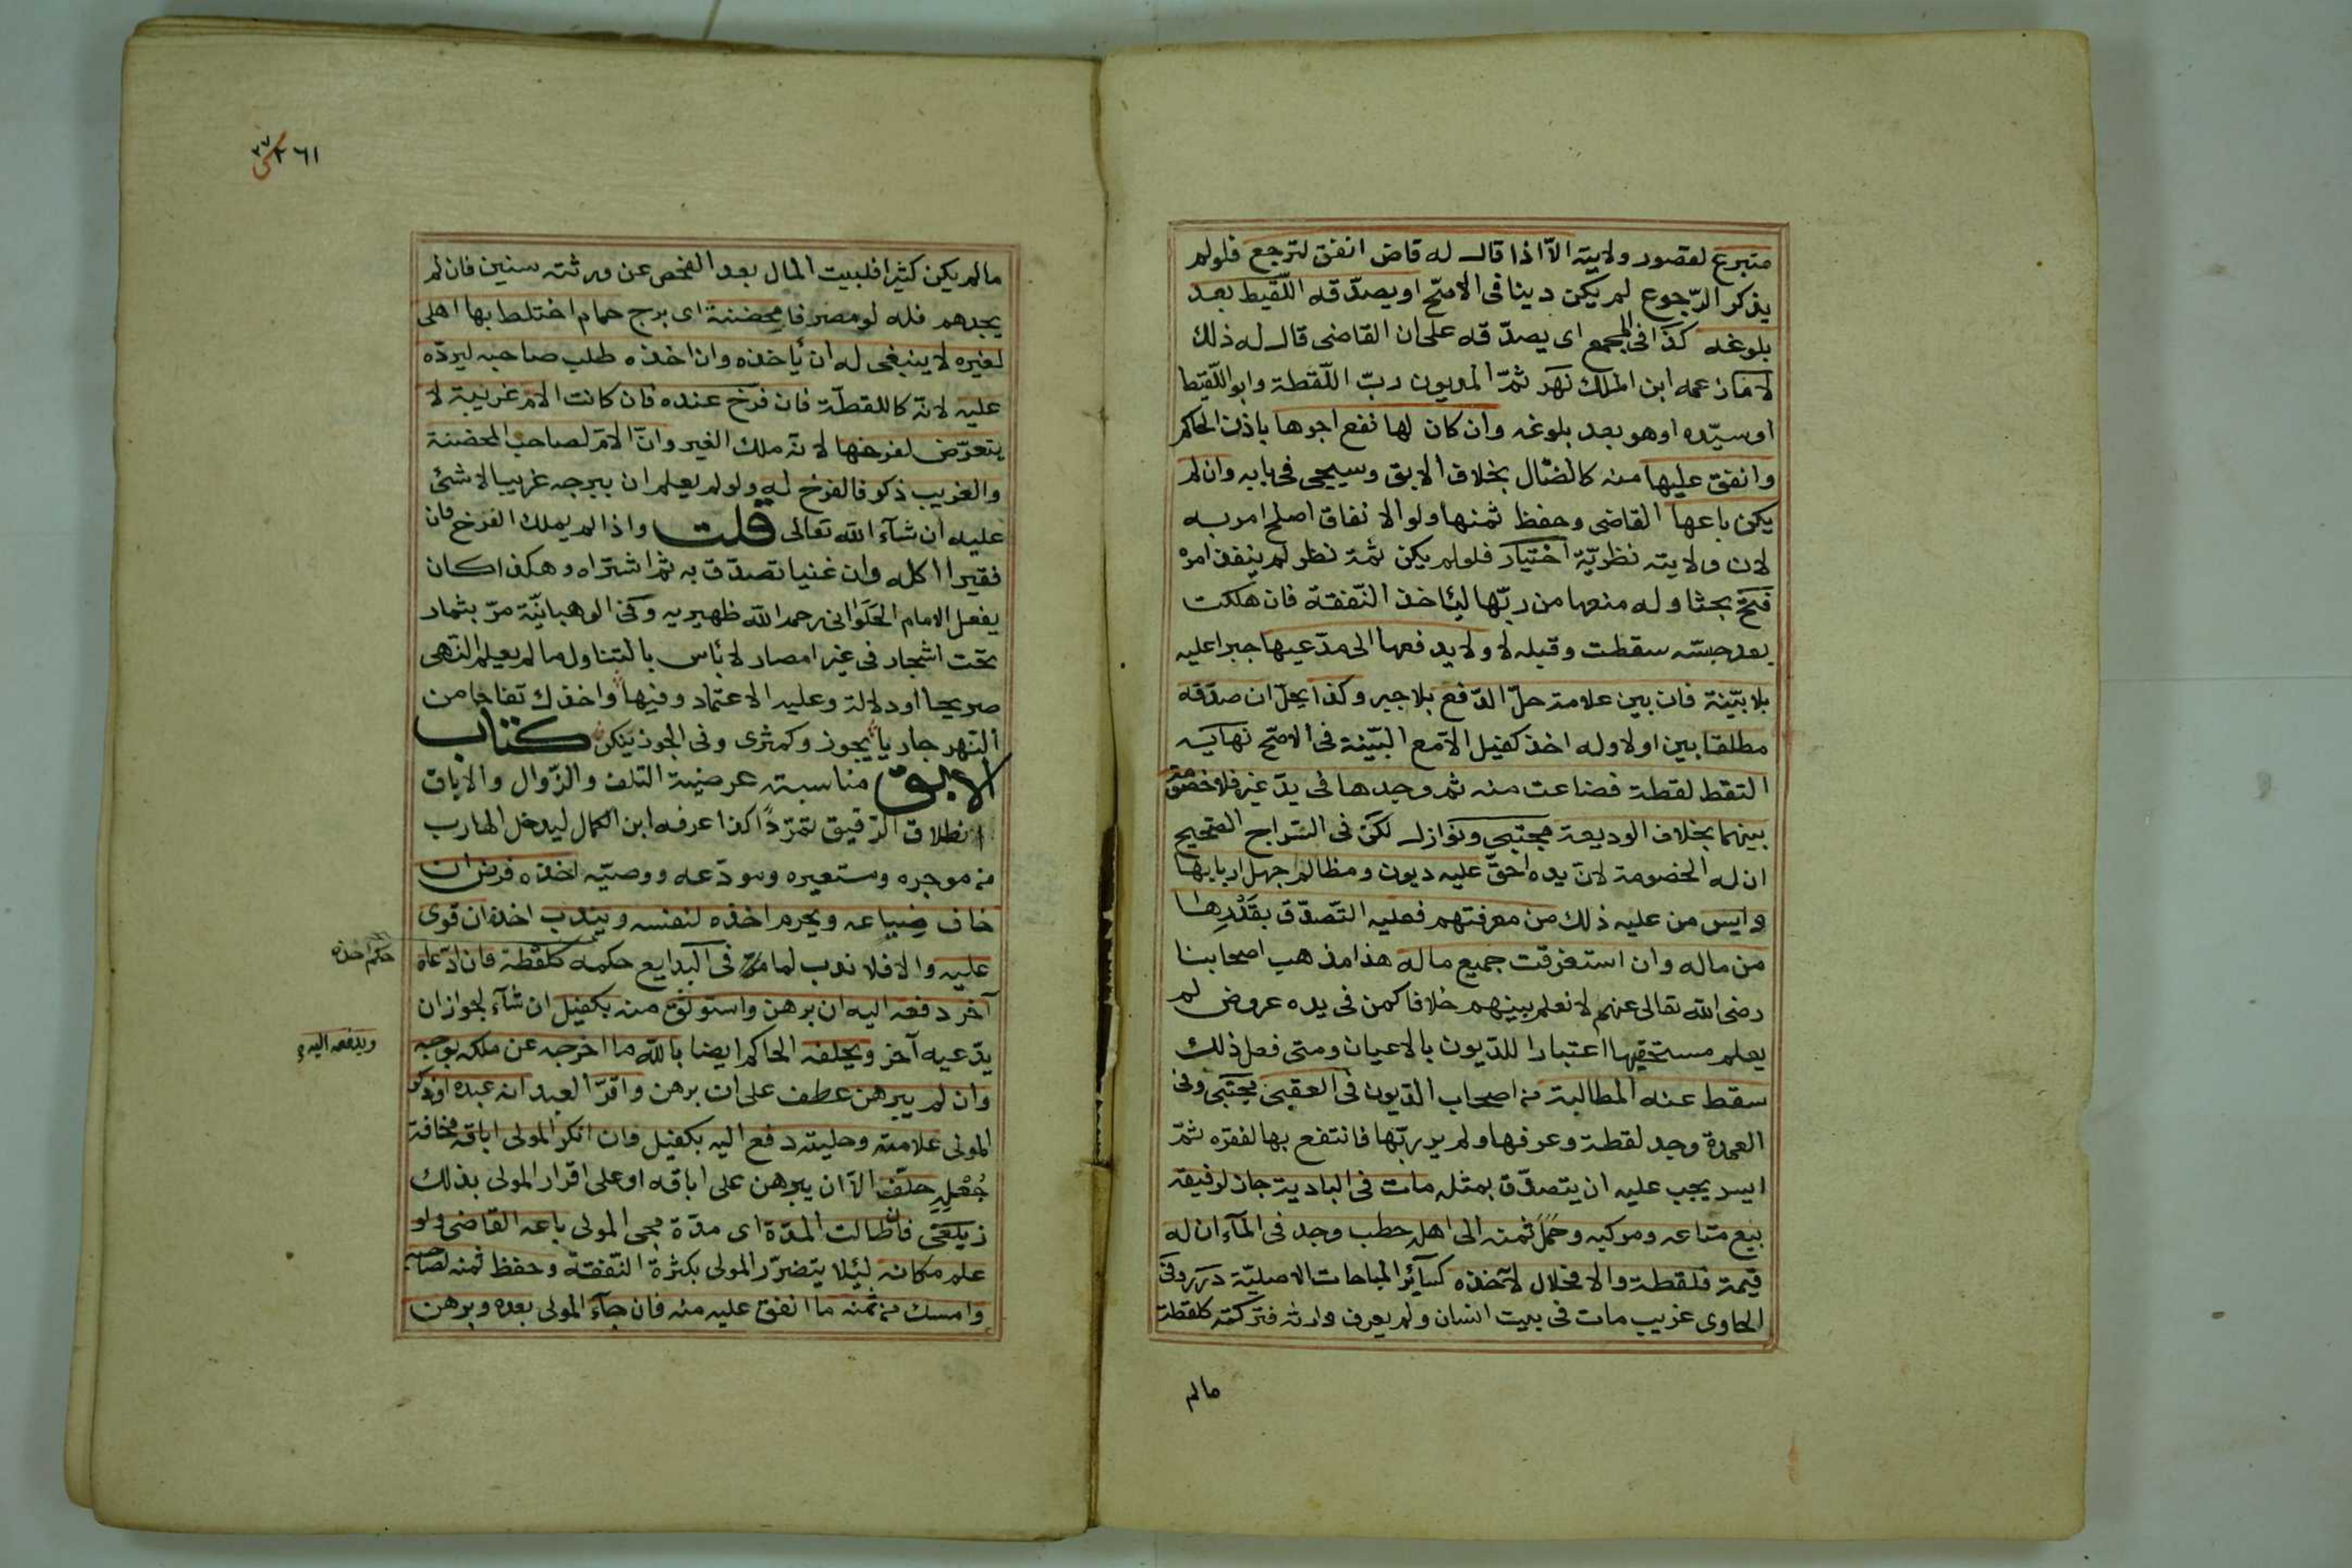 متبرع لقصور ولايته الا اذا قال له قاض انفق لترجع فلو لم
يذكر الرّجوع لم يكن دينا فى الاصحّ او يصدّقه اللّقيط بعد
بلوغه كذا فى المجمع اى يصدّقه على ان القاضى قال له ذلك
لا ما زعمه ابن الملك نهر ثمّ المديون ربّ اللّقطة وابو اللّقيط
او سيّده او هو بعد بلوغه وان كان لها نفع اجرها باذن الحاكم
وانفق عليها منه كالضّال بخلاف الابق وسيجى فى بابه وان لم
يكن باعها القاضى وحفظ ثمنها ولو الانفاق اصلح امر به
لان ولايته نظريّة اختيار فلو لم يكن ثمة نظر لم ينفذ امره
فتح بحثا وله منعها من ربّها لياخذ النّفقة فان هلكت
بعد حبسه سقطت وقبله لا ولا يدفعها الى مدّعيها جبرا عليه
بلا بيّنة فان بين علامة حلّ الدّفع بلا جبر وكذا يحل ان صدّقه
مطلقا بين اولا وله اخذ كفيل الا مع البيّنة فى الاصحّ نهاية
التقط لقطة فضاعت منه ثم وجدها فى يد غيره فلا خصومة
بينهما بخلاف الوديعة مجتبى ونوازل لكن فى السّراج الصّحيح
ان له الخصومة لانّ يده احقّ عليه ديون ومظالم جهل اربابها
وايس من عليه ذلك من معرفتهم فعليه التّصدّق بقَدْرِها
من ماله وان استغرقت جميع ماله هذا مذهب اصحابنا
رضى الله تعالى عنهم لا نعلم بينهم خلافا كمن فى يده عروض لم
يعلم مستحقيها اعتبارا للدّيون بالاعيان ومتى فعل ذلك
سقط عنه المطالبة من اصحاب الدّيون فى العقبى مجتبى وفى
العمدة وجد لقطة وعرفها ولم ير ربّها فانتفع بها لفقره ثمّ
ايسر يجب عليه ان يتصدّق بمثله مات فى البادية جاز لرفيقه
بيع متاعه ومركبه وحمل ثمنه الى اهله حطب وجد فى المآء ان له
قيمة فلقطة والا فحلال لآخذه كسآئر المباحات الاصليّة درر وفى
الحاوى غريب مات فى بيت انسان ولم يعرف وارثه فتركته كلقطة
مالم
٢٦١
مالم يكن كثيرا فلبيت المال بعد الفحص عن ورثته سنين فان لم
يجدهم فله لو مصرفا محضنة اى برج حمام اختلط بها اهلى
لغيره لا ينبغى له ان يأخذه وان اخذه طلب صاحبه ليردّه
عليه لانّه كاللقطة فان فرّخ عنده فان كانت الامّ غريبة لا
يتعرّض لفرخها لانّه ملك الغير وانّ الامّ لصاحب المحضنة
والغريب ذكر فالفرخ له ولو لم يعلم ان ببرجه غريبا لا شئ
عليه ان شآء الله تعالى قلت واذا لم يملك الفرخ فان
فقيرا اكله وان غنيا تصدّق به ثم اشتراه وهكذا كان
يفعل الامام الحلوانى رحمه الله ظهيريه وفى الوهبانيّة مرّ بثمار
تحت اشجار فى غير امصار لا بأس بالتناول ما لم يعلم النّهى
صريحا او دلالة وعليه الاعتماد وفيها واخذك تفاحا من
النّهر جاريا يجوز وكمثرى وفى الجوز ينكر كتاب
الابق مناسبته عرضية التلف والزّوال والاباق
انطلاق الرّقيق تمرّدًا كذا عرفه ابن الكمال ليدخل الهارب
من موجره ومستعيره ومودّعه ووصيّه اخذه فرض ان
خاف ضياعه ويحرم اخذه لنفسه ويندب اخذه ان قوى
عليه والا فلا ندب لما مرّ فى البدايع حكمه كلقطة فان ادّعاه
حكم اخذه
آخر دفعه اليه ان برهن واستوثق منه بكفيل ان شآء لجواز ان
يدّعيه آخر ويحلفه الحاكم ايضا بالله ما اخرجه عن ملكه بوجه
ويدفعه اليه
وان لم يبرهن عطف على ان برهن واقرّ العبد انه عبده او ذكر
المولى علامته وحليته دفع اليه بكفيل وان انكر المولى اباقه مخافة
جُعْلِهِ حلف الاّ ان يبرهن على اباقه او على اقرار المولى بذلك
زيلعى فان طالت المدّة اى مدّة مجى المولى باعه القاضى ولو
علم مكانه ليلا يتضرّر المولى بكثرة النّفقة وحفظ ثمنه لصاحبه
وامسك من ثمنه ما انفق عليه منه فان جآء المولى بعده وبرهن